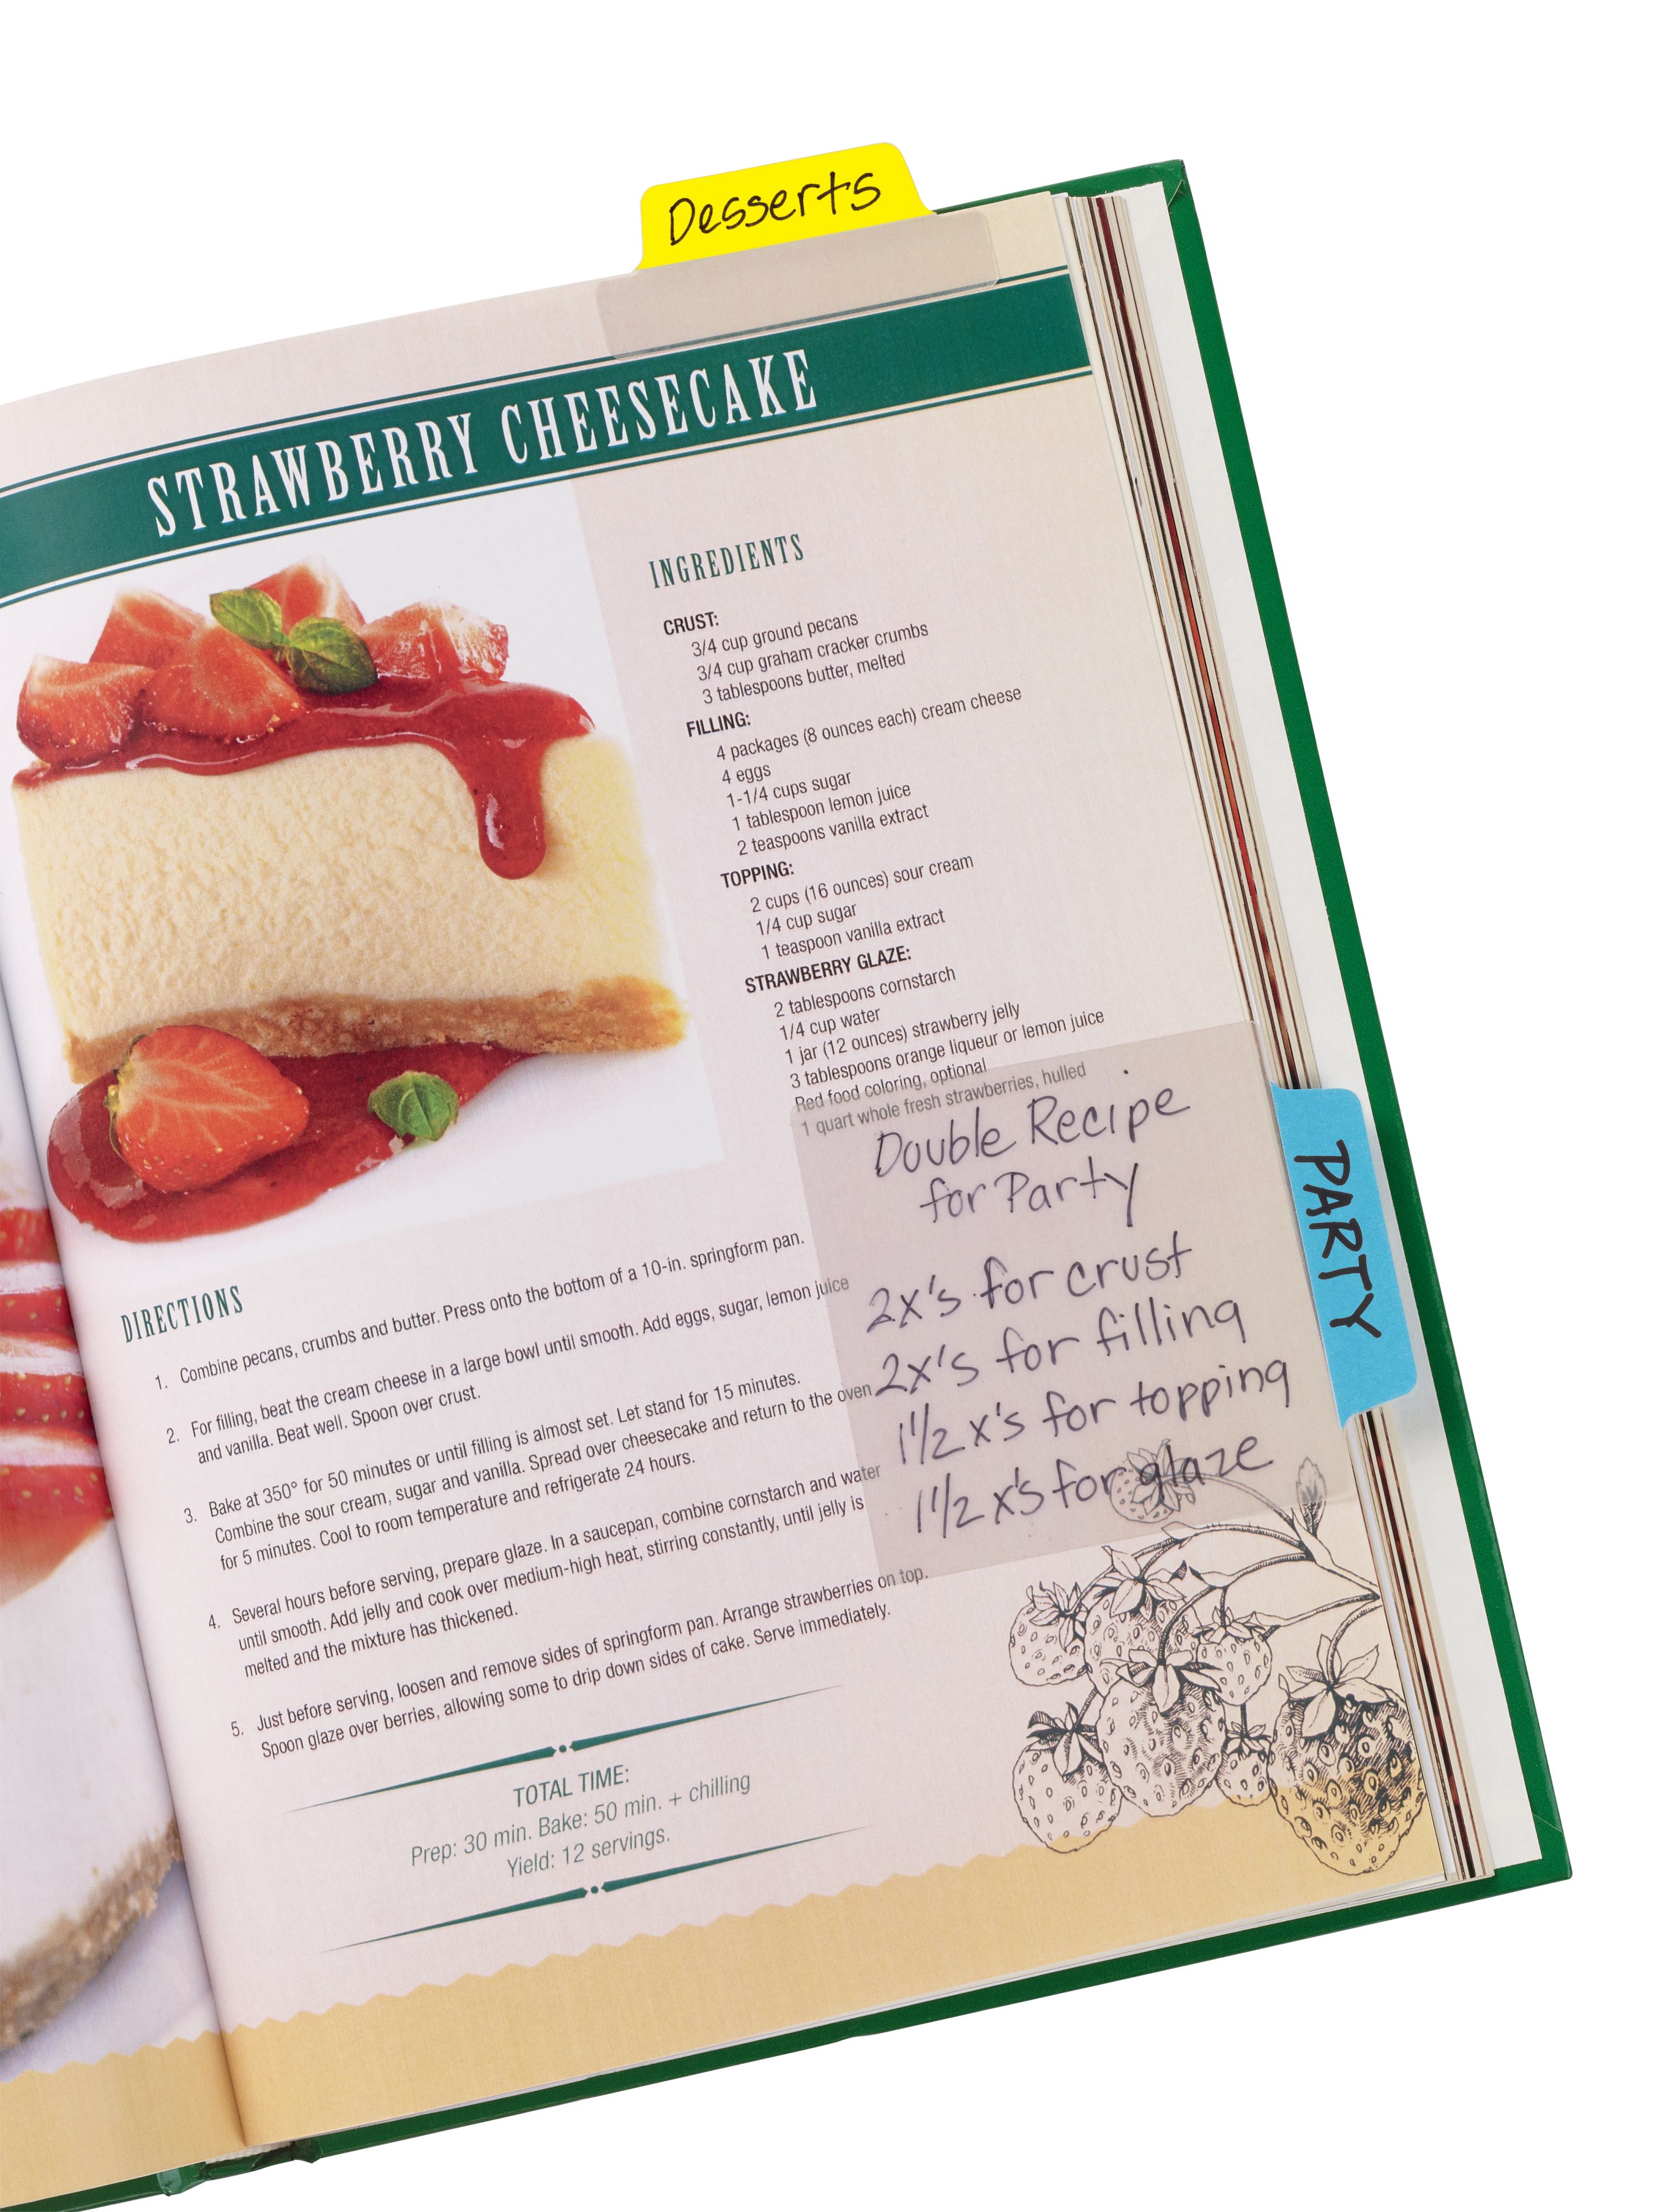 Desserts
STRAWBERRY CHEESECAKE
INGREDIENTS
CRUST:
3/4 cup ground pecans
3/4 cup graham cracker crumbs
3 tablespoons butter, melted
FILLING:
4 packages (8 ounces each) cream cheese
4 eggs
1-1/4 cups sugar
1 tablespoon lemon juice
2 teaspoons vanilla extract
TOPPING:
2 cups (16 ounces) sour cream
1/4 cup sugar
1 teaspoon vanilla extract
STRAWBERRY GLAZE:
2 tablespoons cornstarch
1/4 cup water
1 jar (12 ounces) strawberry jelly
3 tablespoons orange liqueur or lemon juice
Red food coloring, optional
1 quart whole fresh strawberries, hulled
Double Recipe
for Party
2x's for crust
2x's for filling
1 1/2 x's for topping
1 1/2 x's for glaze
PARTY
DIRECTIONS
1. Combine pecans, crumbs and butter. Press onto the bottom of a 10-in. springform pan.
2. For filling, beat the cream cheese in a large bowl until smooth. Add eggs, sugar, lemon juice
and vanilla. Beat well. Spoon over crust.
3. Bake at 350° for 50 minutes or until filling is almost set. Let stand for 15 minutes.
Combine the sour cream, sugar and vanilla. Spread over cheesecake and return to the oven
for 5 minutes. Cool to room temperature and refrigerate 24 hours.
4. Several hours before serving, prepare glaze. In a saucepan, combine cornstarch and water
until smooth. Add jelly and cook over medium-high heat, stirring constantly, until jelly is
melted and the mixture has thickened.
5. Just before serving, loosen and remove sides of springform pan. Arrange strawberries on top.
Spoon glaze over berries, allowing some to drip down sides of cake. Serve immediately.
TOTAL TIME:
Prep: 30 min. Bake: 50 min. + chilling
Yield: 12 servings.